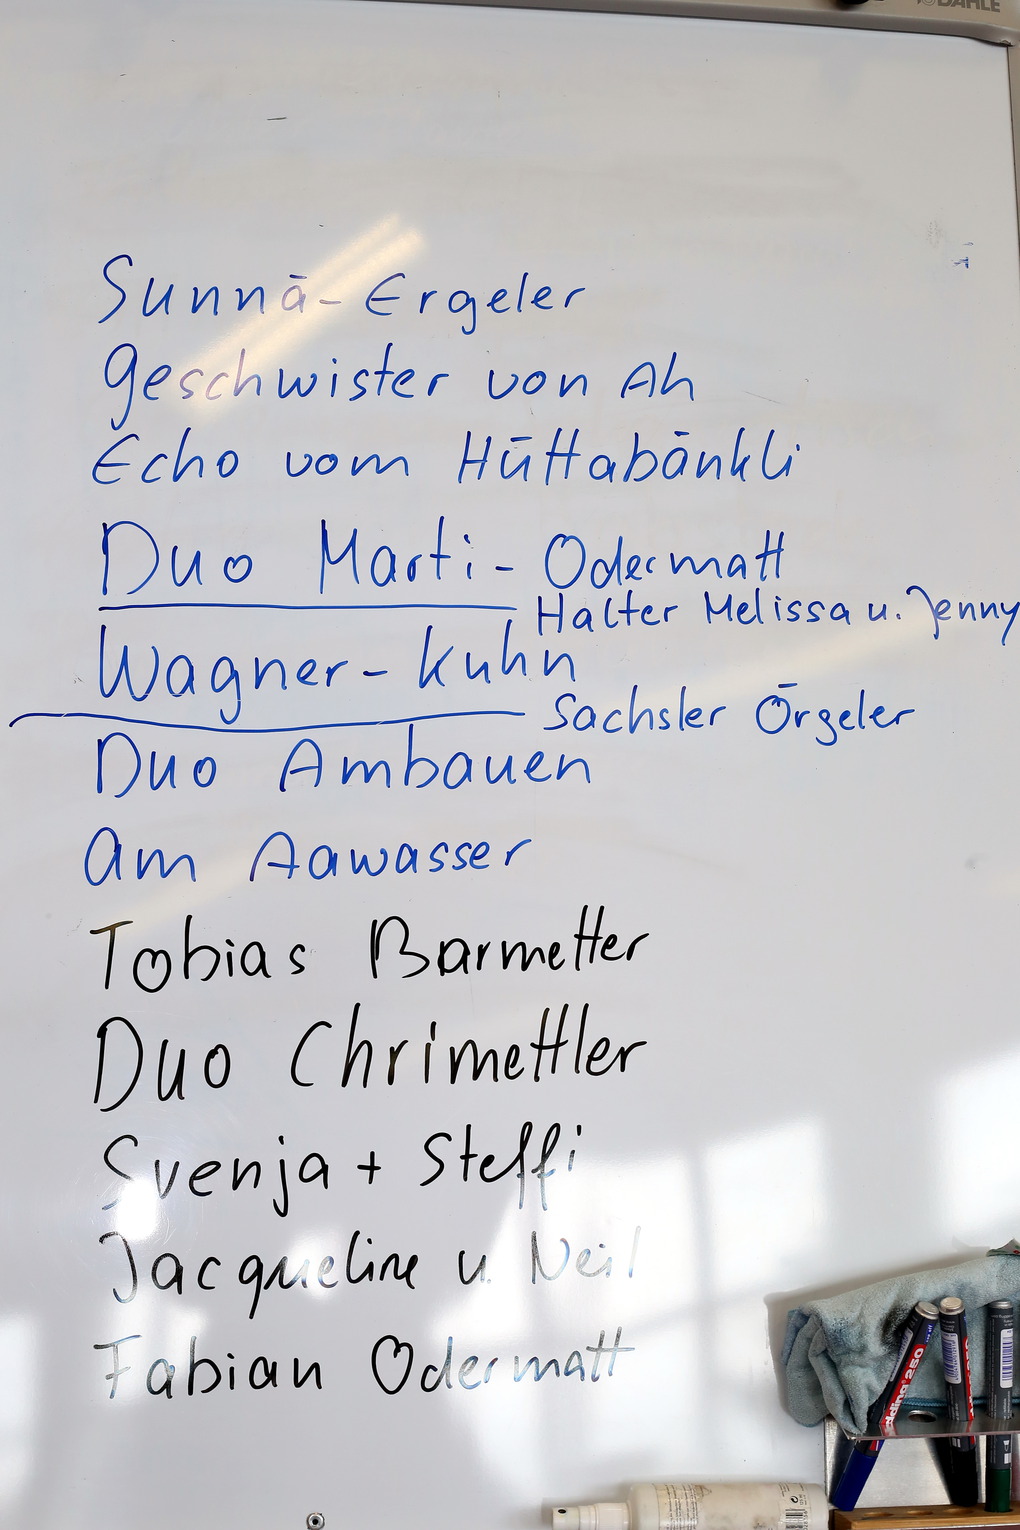 DAHLE
Sunnä-Ergeler
Geschwister von Ah
Echo vom Hüttabänkli
Duo Marti-Odermatt
Halter Melissa u. Jenny
Wagner-Kuhn
Sachsler Örgeler
Duo Ambauen
am Aawasser
Tobias Barmettler
Duo Chrimettler
Svenja + Steffi
Jacqueline u. Neil
Fabian Odermatt
edding 250